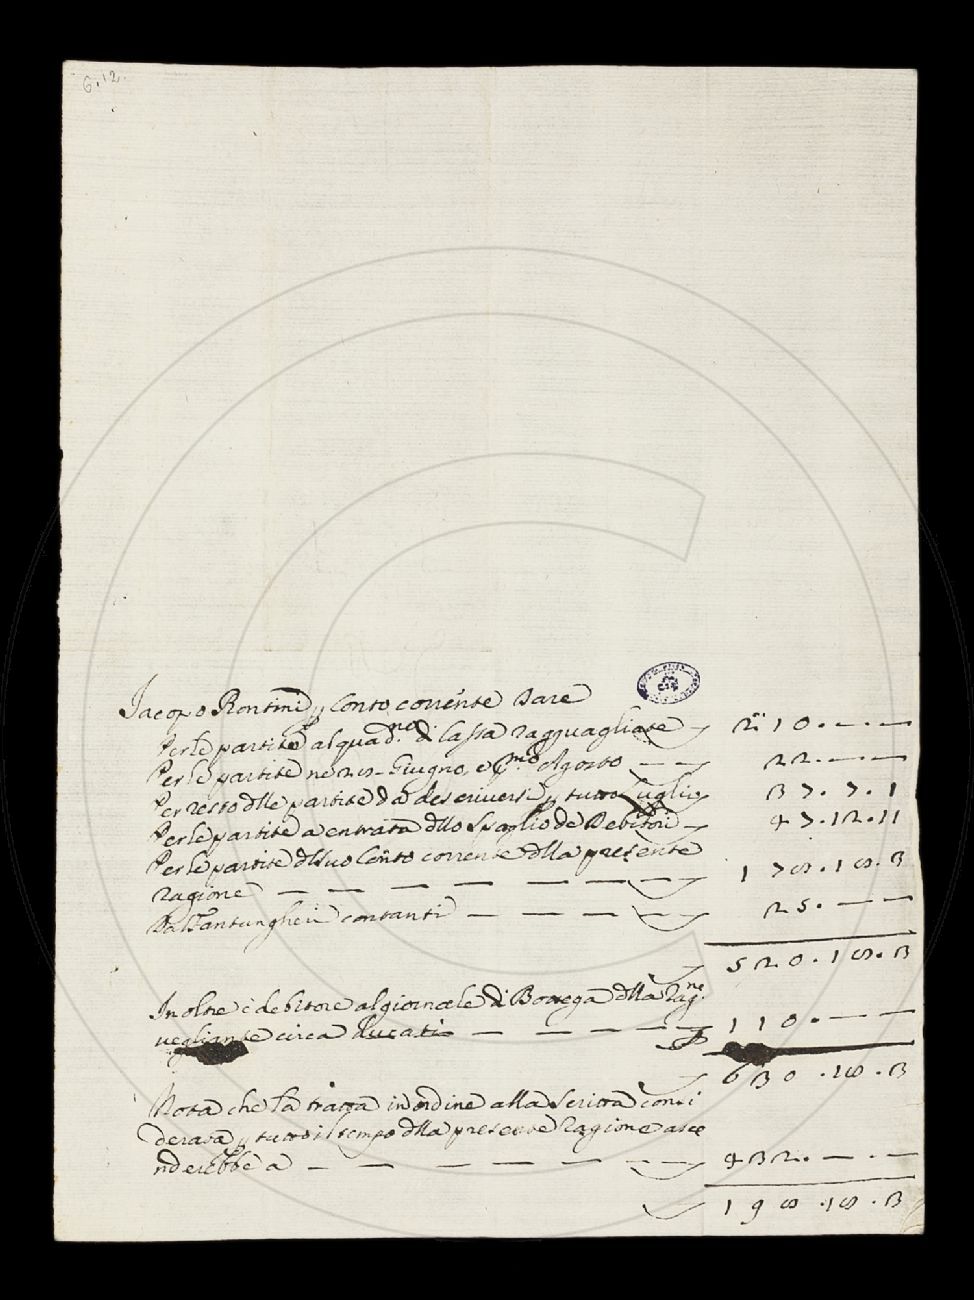 6.12.
Jacopo Rontini p Conto corrente Dare
Per le partite al quad.no di Cassa ragguagliate 210.—.—
Per le partite nº 215 Giugno, e p.mo Agosto — — 22.—.—
Per resto dlle partite da descriversi p tutto luglio 37.7.1
Per le partite a entrata dllo Spoglio de Debitori 47.12.11
Per le partite dl suo Conto corrente dlla presente
ragione — — — — — — 178.18.3
contanti — — — 25.—.—
520.18.3
Inoltre è debitore al giornale di Bottega dlla rag.ne
vegliante circa ducati — — — — 110.—.—
630.18.3
Nota che la tratta in ordine alla Scritta consi
derata p tutto il tempo dlla presente ragione asce
nderebbe a — — — — — — 432.—.—
198.18.3